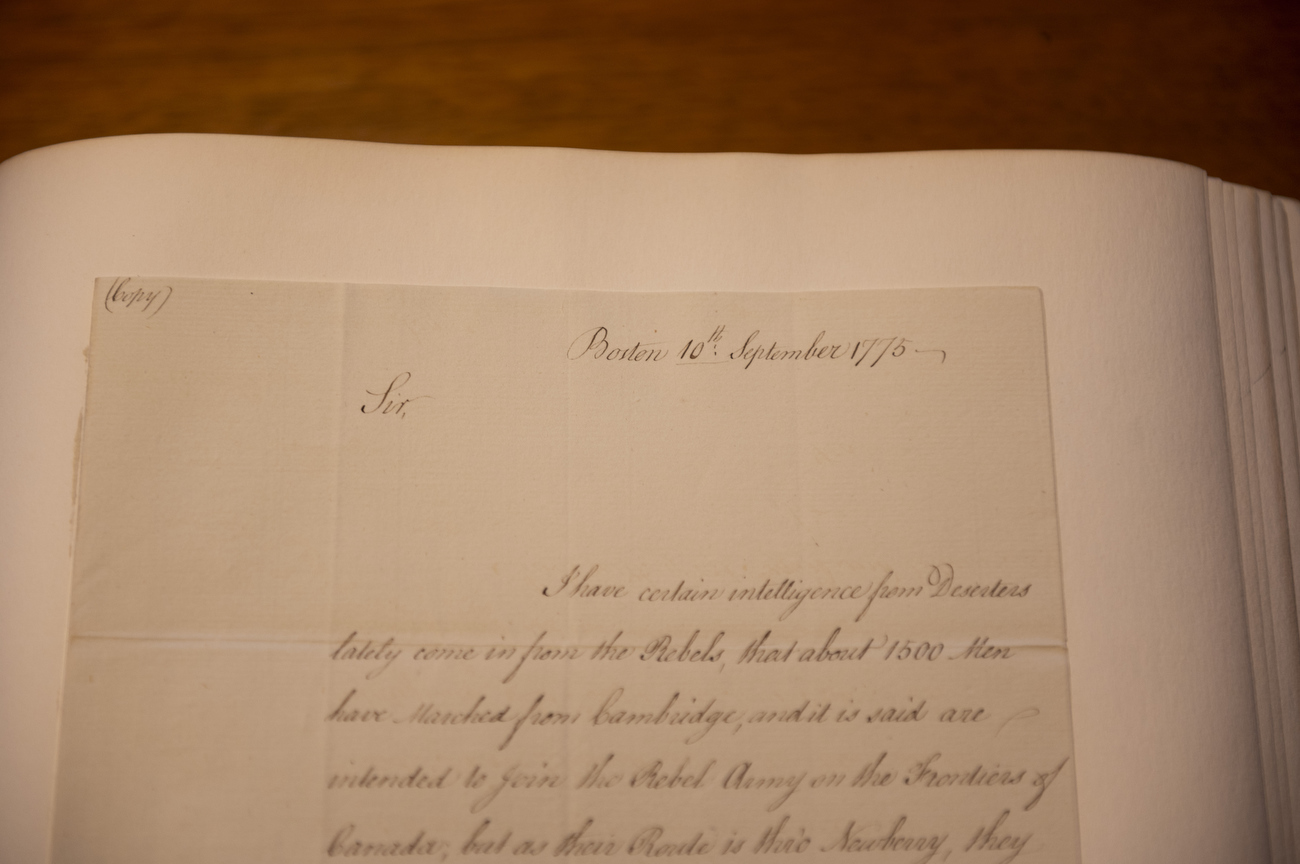 (Copy)
Boston 10th. September 1775
Sir,
I have certain intelligence from Deserters
lately come in from the Rebels, that about 1500 Men
have Marched from Cambridge, and it is said are
intended to join the Rebel Army on the Frontiers of
Canada; but as their Route is thro' Newberry, they